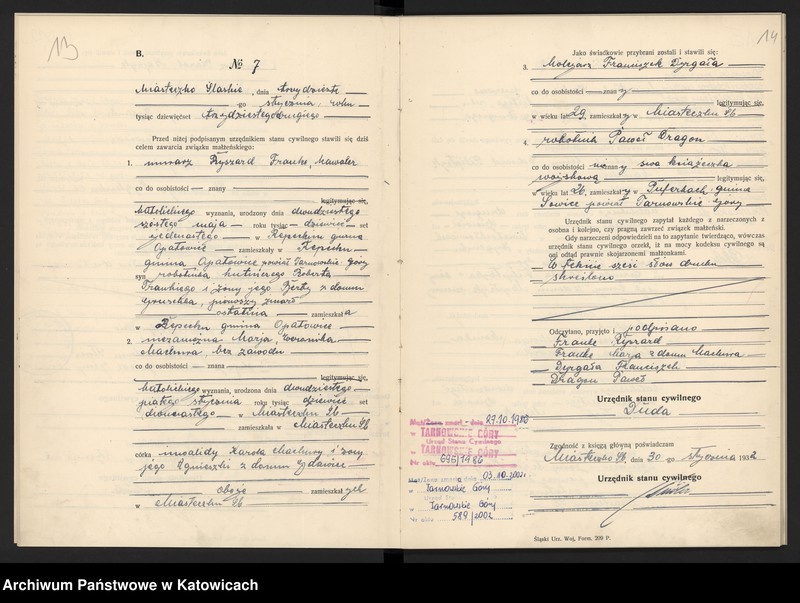 13
B.
№ 7
Miasteczko Śląskie, dnia trzydzieste-
-go stycznia roku
tysiąc dziewięćset trzydziestegodrugiego
Przed niżej podpisanym urzędnikiem stanu cywilnego stawili się dziś
celem zawarcia związku małżeńskiego:
1. murarz Ryszard Franke, kawaler
co do osobistości — znany
legitymując się,
katolickiego wyznania, urodzony dnia dwudziestego
szóstego maja — roku tysiąc — dziewięć — set
jedenastego — w Repecku gmina
Opatowice — zamieszkały w Repecku
gmina Opatowice powiat Tarnowskie Góry
syn robotnika hutniczego Roberta
Frankiego i żony jego Berty z domu
pierwszy zmarł
ostatnia — zamieszkała
w Repecku gmina Opatowice
2. niezamężna Marja, Weronika
Machura, bez zawodu
co do osobistości — znana
legitymując się,
katolickiego wyznania, urodzona dnia dwudziestego
piątego stycznia roku tysiąc dziewięć set
dwunastego — w Miasteczku Śl.
zamieszkała w Miasteczku Śl.
córka inwalidy Karola Machury i żony
jego Agnieszki z domu
oboje — zamieszkałych
w Miasteczku Śl.
14
Jako świadkowie przybrani zostali i stawili się:
3. Franciszek Dyrgała
co do osobistości — znany
legitymując się,
w wieku lat 29, zamieszkały w Miasteczku Śl.
4. robotnik Paweł Dragon
co do osobistości swą książeczką
wojskową — legitymując się,
w wieku lat 26, zamieszkały w gmina
Sowice powiat Tarnowskie Góry
Urzędnik stanu cywilnego zapytał każdego z narzeczonych z
osobna i kolejno, czy pragną zawrzeć związek małżeński.
Gdy narzeczeni odpowiedzieli na to zapytanie twierdząco, wówczas
urzędnik stanu cywilnego orzekł, iż na mocy kodeksu cywilnego są
oni odtąd prawnie skojarzonemi małżonkami.
W tekście sześć słów druku
skreślono
Odczytano, przyjęto i podpisano
Franke Ryszard
Franke Marja z domu Machura
Dyrgała Franciszek
Dragon Paweł
Urzędnik stanu cywilnego
Duda
Zgodność z księgą główną poświadczam
Miasteczko Śl., dnia 30-go stycznia 1932
Urzędnik stanu cywilnego
Mąż/Żona zmarł dnia 29.10.1986
w TARNOWSKIE GÓRY
Urząd Stanu Cywilnego
w TARNOWSKIE GÓRY
Nr aktu 695/1986
Mąż/Żona zmarła dnia 03.10.2002r
w Tarnowskie Góry
Urząd
w Tarnowskie Góry
Nr aktu 589/2002
Śląski Urz. Woj. Form. 208 P.
Archiwum Państwowe w Katowicach